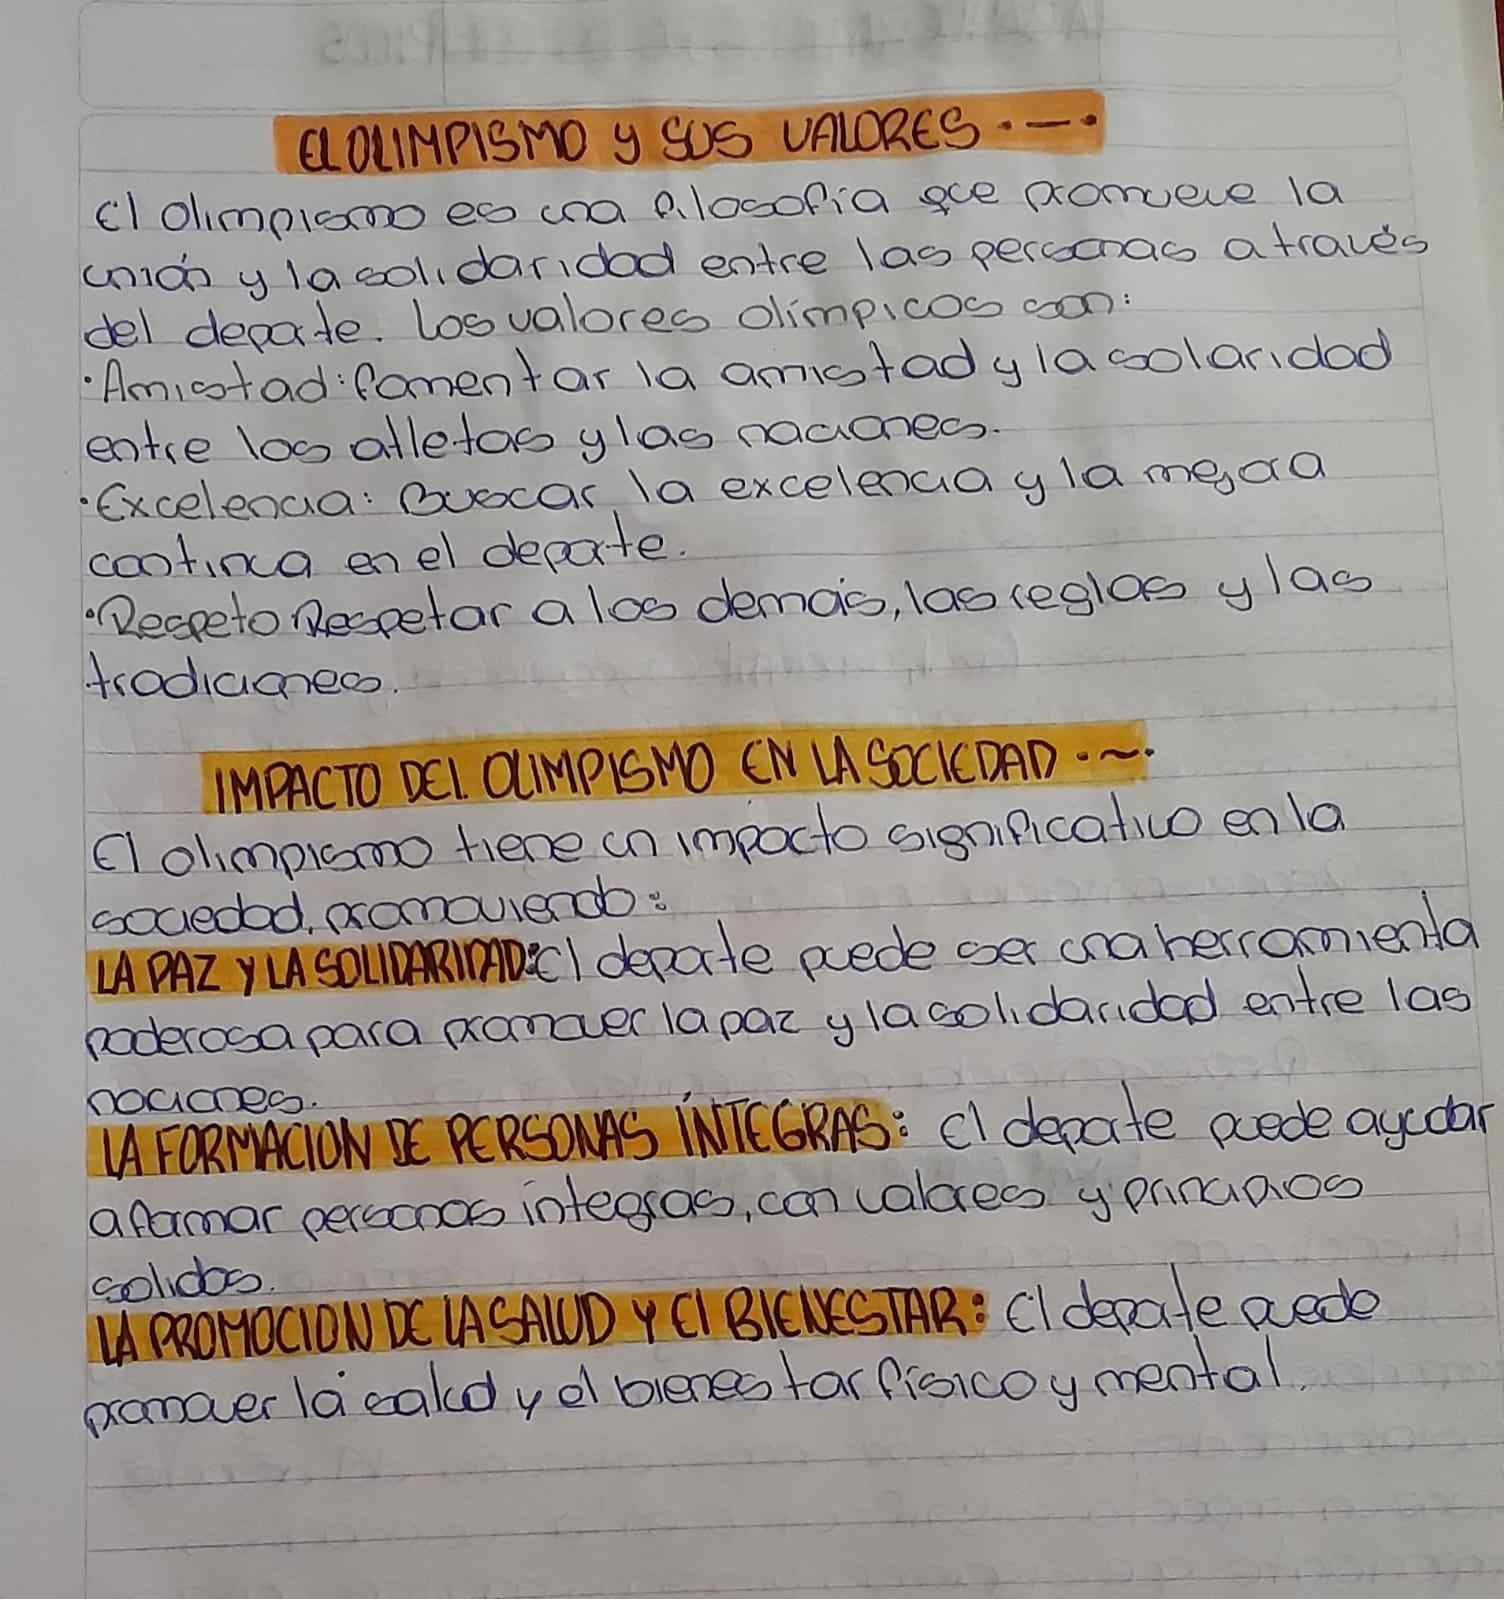 EL OLIMPISMO y SUS VALORES
El olimpismo es una filosofía que promueve la
unión y la solidaridad entre las personas a través
del deporte. Los valores olímpicos son:
· Amistad: fomentar la amistad y la solaridad
entre los atletas y las naciones.
· Excelencia: Buscar la excelencia y la mejora
continua en el deporte.
· Respeto Respetar a los demás, las reglas y las
tradiciones.
IMPACTO DEL OLIMPISMO EN LA SOCIEDAD
El olimpismo tiene un impacto significativo en la
sociedad, promoviendo:
LA PAZ Y LA SOLIDARIDAD: El deporte puede ser una herramienta
poderosa para promover la paz y la solidaridad entre las
naciones.
LA FORMACION DE PERSONAS ÍNTEGRAS: El deporte puede ayudar
a formar personas integras, con valores y principios
solidos.
LA PROMOCION DE LA SALUD Y El BIENESTAR: El deporte puede
promover la salud y el bienestar físico y mental.